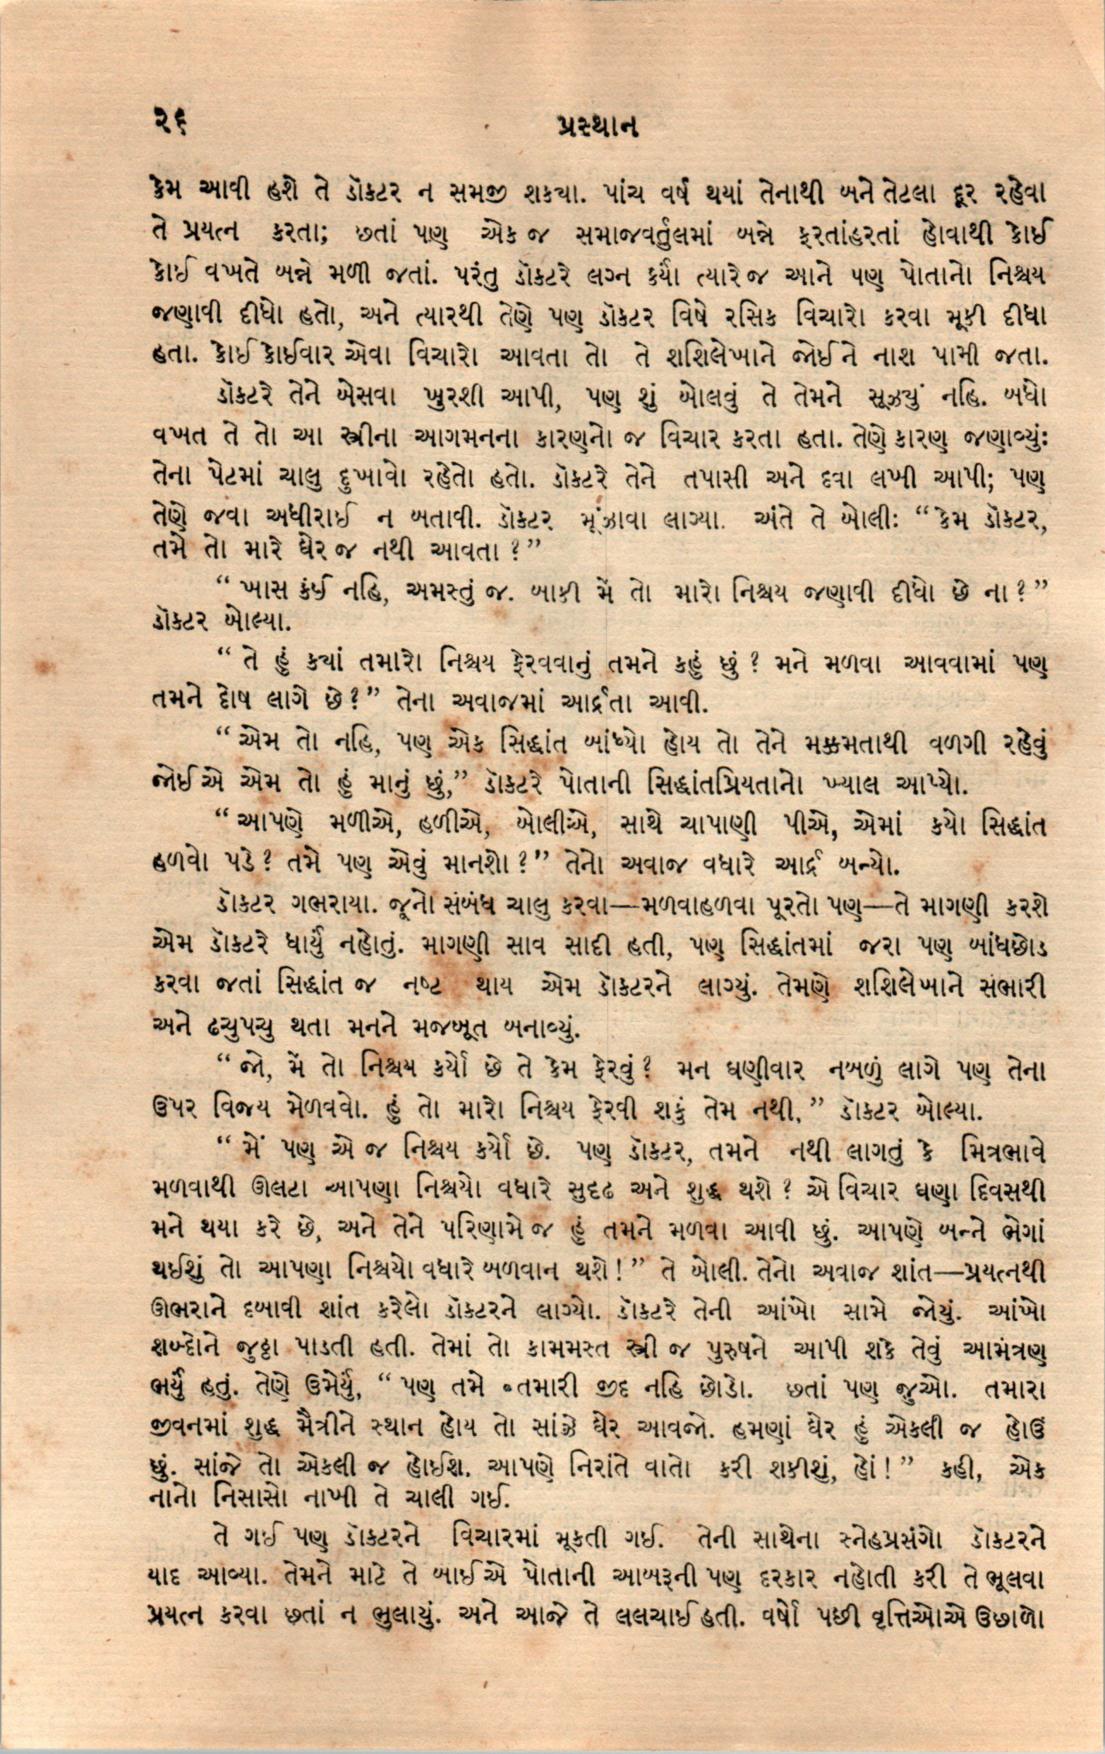 ૨૬
પ્રસ્થાન
કેમ આવી હશે તે ડૉકટર ન સમજી શક્યા. પાંચ વર્ષ થયાં તેનાથી બને તેટલા દૂર રહેવા
તે પ્રયત્ન કરતા; છતાં પણ એક જ સમાજવર્તુલમાં બન્ને ફરતાંહરતાં હોવાથી કોઈ
કોઈ વખતે બન્ને મળી જતાં. પરંતુ ડૉકટરે લગ્ન કર્યાં ત્યારે જ આને પણ પોતાનો નિશ્ચય
જણાવી દીધો હતો, અને ત્યારથી તેણે પણ ડૉકટર વિષે રસિક વિચારો કરવા મૂકી દીધા
હતા. કોઈ કોઈવાર એવા વિચારો આવતા તો તે શશિલેખાને જોઈને નાશ પામી જતા.
ડૉકટરે તેને બેસવા ખુરશી આપી, પણ શું બોલવું તે તેમને સૂઝ્યું નહિ. બધો
વખત તે તો આ સ્ત્રીના આગમનના કારણનો જ વિચાર કરતા હતા. તેણે કારણ જણાવ્યું:
તેના પેટમાં ચાલુ દુખાવો રહેતો હતો. ડૉકટરે તેને તપાસી અને દવા લખી આપી; પણ
તેણે જવા અધીરાઈ ન બતાવી. ડૉકટર મૂંઝાવા લાગ્યા. અંતે તે બોલી: “કેમ ડૉકટર,
તમે તો મારે ઘેર જ નથી આવતા ?”
“ખાસ કંઈ નહિ, અમસ્તું જ. બાકી મેં તો મારો નિશ્ચય જણાવી દીધો છે ના ?”
ડૉકટર બોલ્યા.
“તે હું ક્યાં તમારો નિશ્ચય ફેરવવાનું તમને કહું છું ? મને મળવા આવવામાં પણ
તમને દોષ લાગે છે ?” તેના અવાજમાં આર્દ્રતા આવી.
“એમ તો નહિ, પણ એક સિદ્ધાંત બાંધ્યો હોય તો તેને મક્કમતાથી વળગી રહેવું
જોઈએ એમ તો હું માનું છું,” ડૉકટરે પોતાની સિદ્ધાંતપ્રિયતાનો ખ્યાલ આપ્યો.
“આપણે મળીએ, હળીએ, બોલીએ, સાથે ચાપાણી પીએ, એમાં કયો સિદ્ધાંત
હળવો પડે ? તમે પણ એવું માનશો ?” તેનો અવાજ વધારે આર્દ્ર બન્યો.
ડૉકટર ગભરાયા. જૂનો સંબંધ ચાલુ કરવા—મળવાહળવા પૂરતો પણ—તે માગણી કરશે
એમ ડૉકટરે ધાર્યું નહોતું. માગણી સાવ સાદી હતી, પણ સિદ્ધાંતમાં જરા પણ બાંધછોડ
કરવા જતાં સિદ્ધાંત જ નષ્ટ થાય એમ ડૉકટરને લાગ્યું. તેમણે શશિલેખાને સંભારી
અને ઢચુપચુ થતા મનને મજબૂત બનાવ્યું.
“જો, મેં તો નિશ્ચય કર્યો છે તે કેમ ફેરવું ? મન ઘણીવાર નબળું લાગે પણ તેના
ઉપર વિજય મેળવવો. હું તો મારો નિશ્ચય ફેરવી શકું તેમ નથી,” ડૉકટર બોલ્યા.
“મેં પણ એ જ નિશ્ચય કર્યો છે. પણ ડૉકટર, તમને નથી લાગતું કે મિત્રભાવે
મળવાથી ઊલટા આપણા નિશ્ચયો વધારે સુદૃઢ અને શુદ્ધ થશે ? એ વિચાર ઘણા દિવસથી
મને થયા કરે છે, અને તેને પરિણામે જ હું તમને મળવા આવી છું. આપણે બન્ને ભેગાં
થઈશું તો આપણા નિશ્ચયો વધારે બળવાન થશે !” તે બોલી. તેનો અવાજ શાંત—પ્રયત્નથી
ઊભરાને દબાવી શાંત કરેલો ડૉકટરને લાગ્યો. ડૉકટરે તેની આંખો સામે જોયું. આંખો
શબ્દોને જુઠ્ઠા પાડતી હતી. તેમાં તો કામમસ્ત સ્ત્રી જ પુરુષને આપી શકે તેવું આમંત્રણ
ભર્યું હતું. તેણે ઉમેર્યું, “પણ તમે તમારી જીદ નહિ છોડો. છતાં પણ જુઓ. તમારા
જીવનમાં શુદ્ધ મૈત્રીને સ્થાન હોય તો સાંઝે ઘેર આવજો. હમણાં ઘેર હું એકલી જ હોઉં
છું. સાંજે તો એકલી જ હોઈશ. આપણે નિરાંતે વાતો કરી શકીશું, હોં !” કહી, એક
નાનો નિસાસો નાખી તે ચાલી ગઈ.
તે ગઈ પણ ડૉકટરને વિચારમાં મૂકતી ગઈ. તેની સાથેના સ્નેહપ્રસંગો ડૉકટરને
યાદ આવ્યા. તેમને માટે તે બાઈએ પોતાની આબરૂની પણ દરકાર નહોતી કરી તે ભૂલવા
પ્રયત્ન કરવા છતાં ન ભુલાયું. અને આજે તે લલચાઈ હતી. વર્ષો પછી વૃત્તિઓએ ઉછાળો